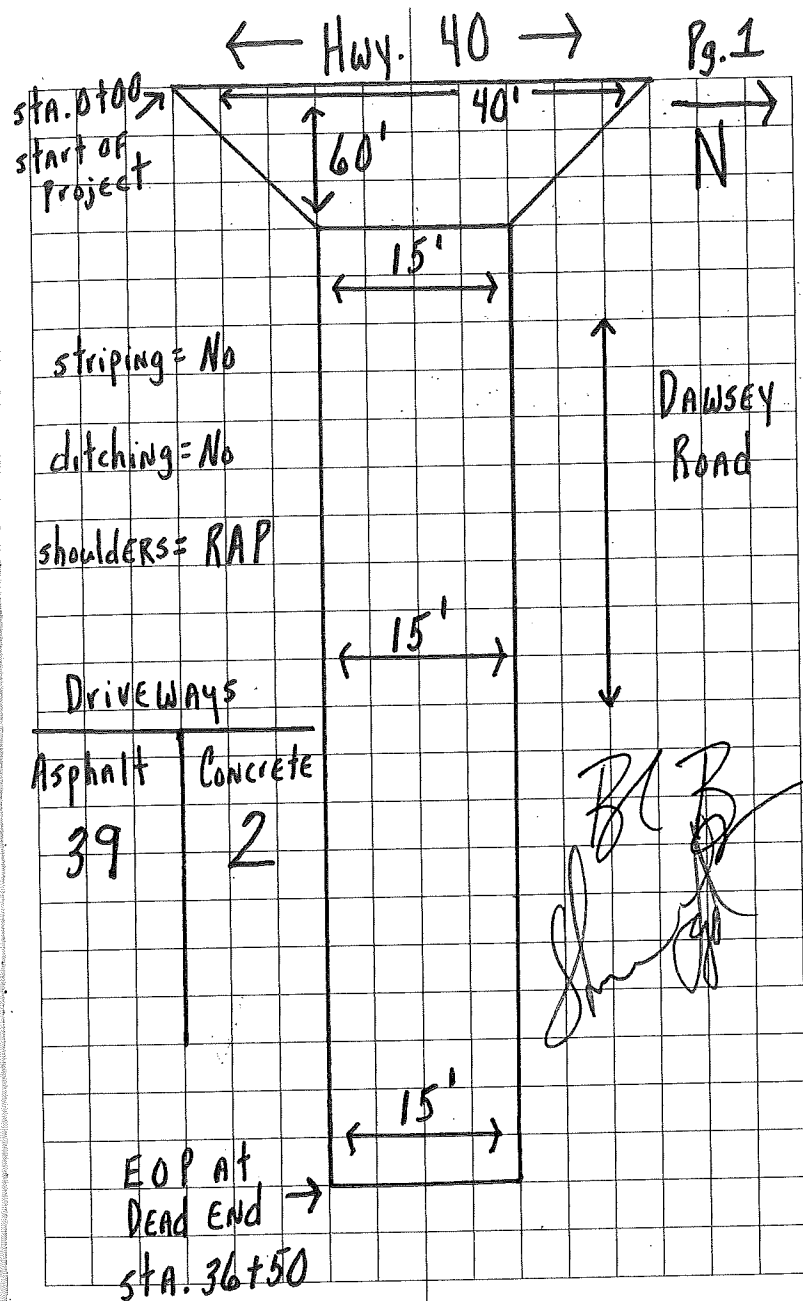 ← Hwy. 40 →
Pg. 1
sta. 0+00
start of
Project
40'
60'
N
15'
striping = No
ditching = No
shoulders = RAP
DAWSEY
ROAD
15'
DRIVEWAYS
Asphalt
Concrete
39
2
15'
EOP At
DEAD END
StA. 36+50